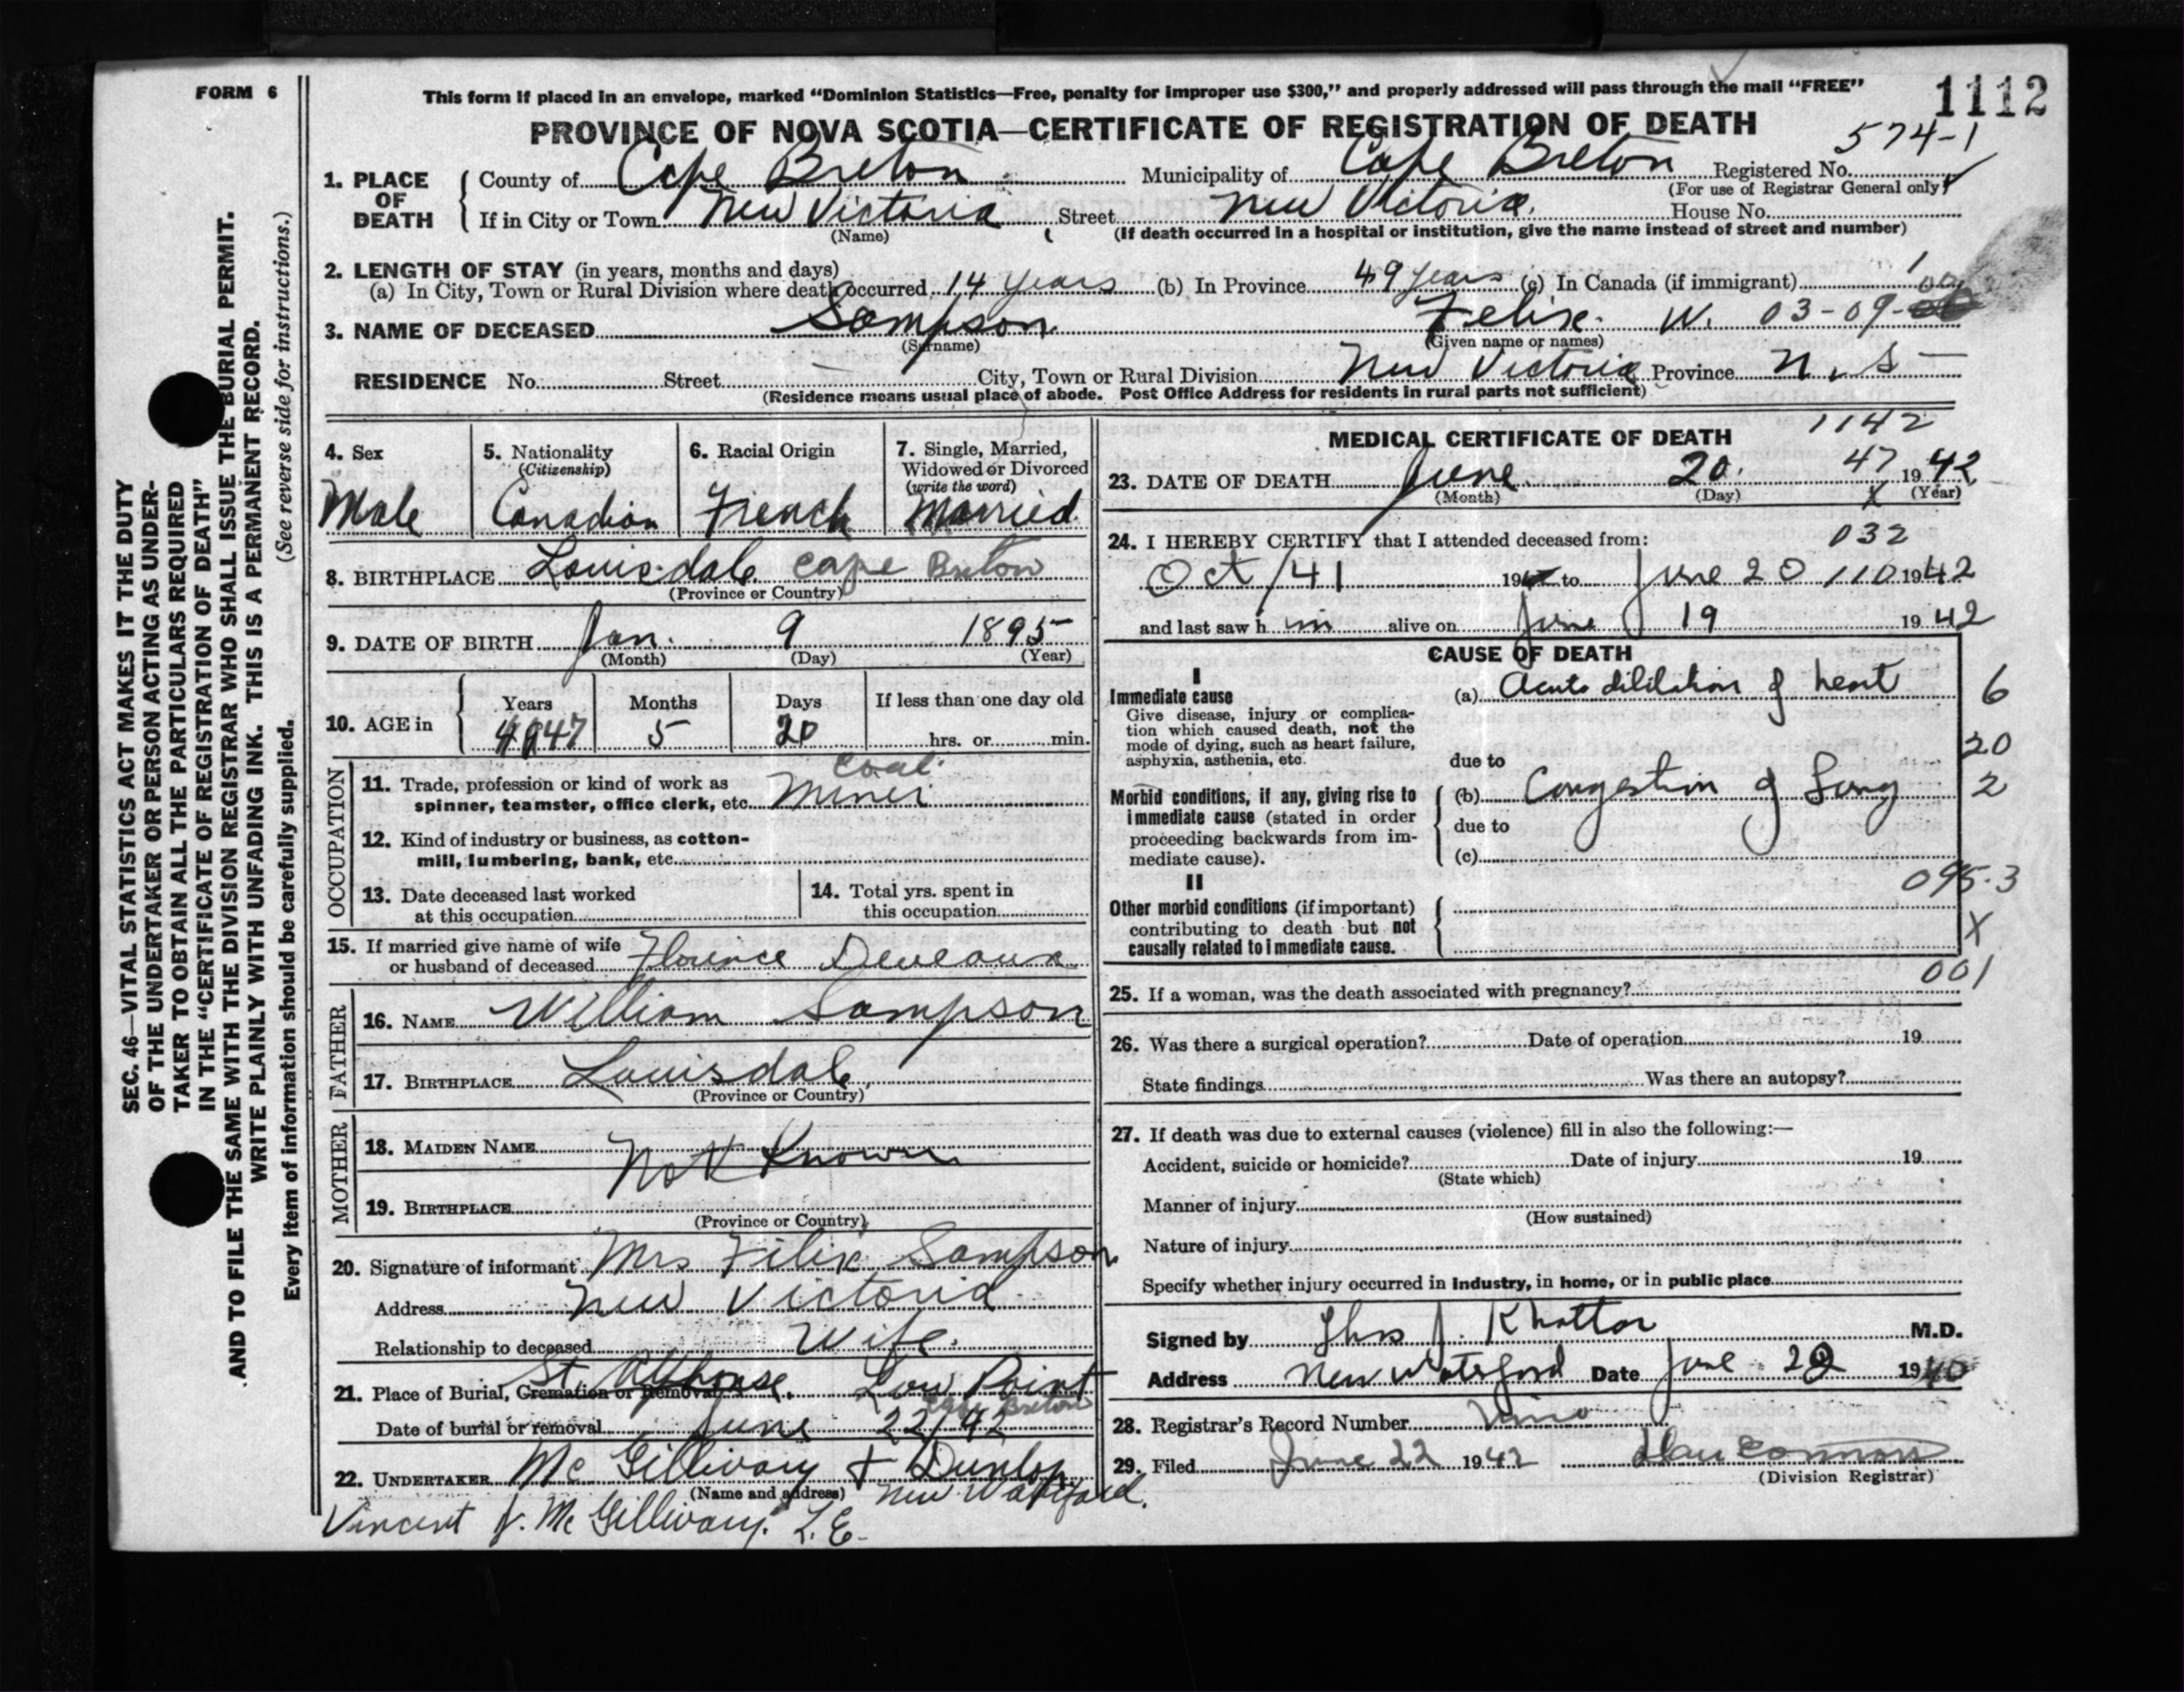 FORM 6
This form if placed in an envelope, marked "Dominion Statistics—Free, penalty for improper use $300," and properly addressed will pass through the mail "FREE"
1112
PROVINCE OF NOVA SCOTIA—CERTIFICATE OF REGISTRATION OF DEATH
574-1
1. PLACE OF DEATH
County of Cape Breton Municipality of Cape Breton Registered No.
(For use of Registrar General only)
If in City or Town New Victoria Street New Victoria. House No.
(Name) (If death occurred in a hospital or institution, give the name instead of street and number)
2. LENGTH OF STAY (in years, months and days)
(a) In City, Town or Rural Division where death occurred 14 years (b) In Province 49 years (c) In Canada (if immigrant)
3. NAME OF DECEASED Sampson Felix. W. 03-09-
(Surname) (Given name or names)
RESIDENCE No. Street City, Town or Rural Division New Victoria Province N. S
(Residence means usual place of abode. Post Office Address for residents in rural parts not sufficient)
SEC. 46—VITAL STATISTICS ACT MAKES IT THE DUTY
OF THE UNDERTAKER OR PERSON ACTING AS UNDER-
TAKER TO OBTAIN ALL THE PARTICULARS REQUIRED
IN THE "CERTIFICATE OF REGISTRATION OF DEATH"
AND TO FILE THE SAME WITH THE DIVISION REGISTRAR WHO SHALL ISSUE THE BURIAL PERMIT.
WRITE PLAINLY WITH UNFADING INK. THIS IS A PERMANENT RECORD.
(See reverse side for instructions.)
Every item of information should be carefully supplied.
4. Sex
Male
5. Nationality
(Citizenship)
Canadian
6. Racial Origin
French
7. Single, Married,
Widowed or Divorced
(write the word)
Married
8. BIRTHPLACE Louisdale Cape Breton
(Province or Country)
9. DATE OF BIRTH Jan. 9 1895
(Month) (Day) (Year)
10. AGE in
Years Months Days If less than one day old
47 5 20 hrs. or min.
OCCUPATION
11. Trade, profession or kind of work as
spinner, teamster, office clerk, etc. Coal Miner
12. Kind of industry or business, as cotton-
mill, lumbering, bank, etc.
13. Date deceased last worked
at this occupation
14. Total yrs. spent in
this occupation
15. If married give name of wife
or husband of deceased Florence Deveaux
FATHER
16. NAME William Sampson
17. BIRTHPLACE Louisdale
(Province or Country)
MOTHER
18. MAIDEN NAME Not Known
19. BIRTHPLACE
(Province or Country)
20. Signature of informant Mrs Filix Sampson
Address New Victoria
Relationship to deceased Wife.
21. Place of Burial, Cremation or Removal St. Alphonse. Low Point
Cape Breton
Date of burial or removal June 22/42
22. UNDERTAKER McGillivary + Dunlop
(Name and address) New Waterford.
Vincent J. McGillivary. L.E.
MEDICAL CERTIFICATE OF DEATH
1142
47
23. DATE OF DEATH June 20. 1942
(Month) (Day) (Year)
X
24. I HEREBY CERTIFY that I attended deceased from:
032
Oct/41 19 to June 20 110 1942
and last saw h im alive on June 19 1942
CAUSE OF DEATH
I
Immediate cause
Give disease, injury or complica-
tion which caused death, not the
mode of dying, such as heart failure,
asphyxia, asthenia, etc.
(a) Acute dilitation of heart
6
due to
20
Morbid conditions, if any, giving rise to
immediate cause (stated in order
proceeding backwards from im-
mediate cause).
(b) Congestion of Lung
2
due to
(c)
095.3
II
Other morbid conditions (if important)
contributing to death but not
causally related to immediate cause.
X
001
25. If a woman, was the death associated with pregnancy?
26. Was there a surgical operation? Date of operation 19
State findings Was there an autopsy?
27. If death was due to external causes (violence) fill in also the following:—
Accident, suicide or homicide? Date of injury 19
(State which)
Manner of injury
(How sustained)
Nature of injury
Specify whether injury occurred in industry, in home, or in public place
Signed by J. Khattar M.D.
Address New Waterford Date June 1940
28. Registrar's Record Number
29. Filed June 22 1942 Dan Connors
(Division Registrar)